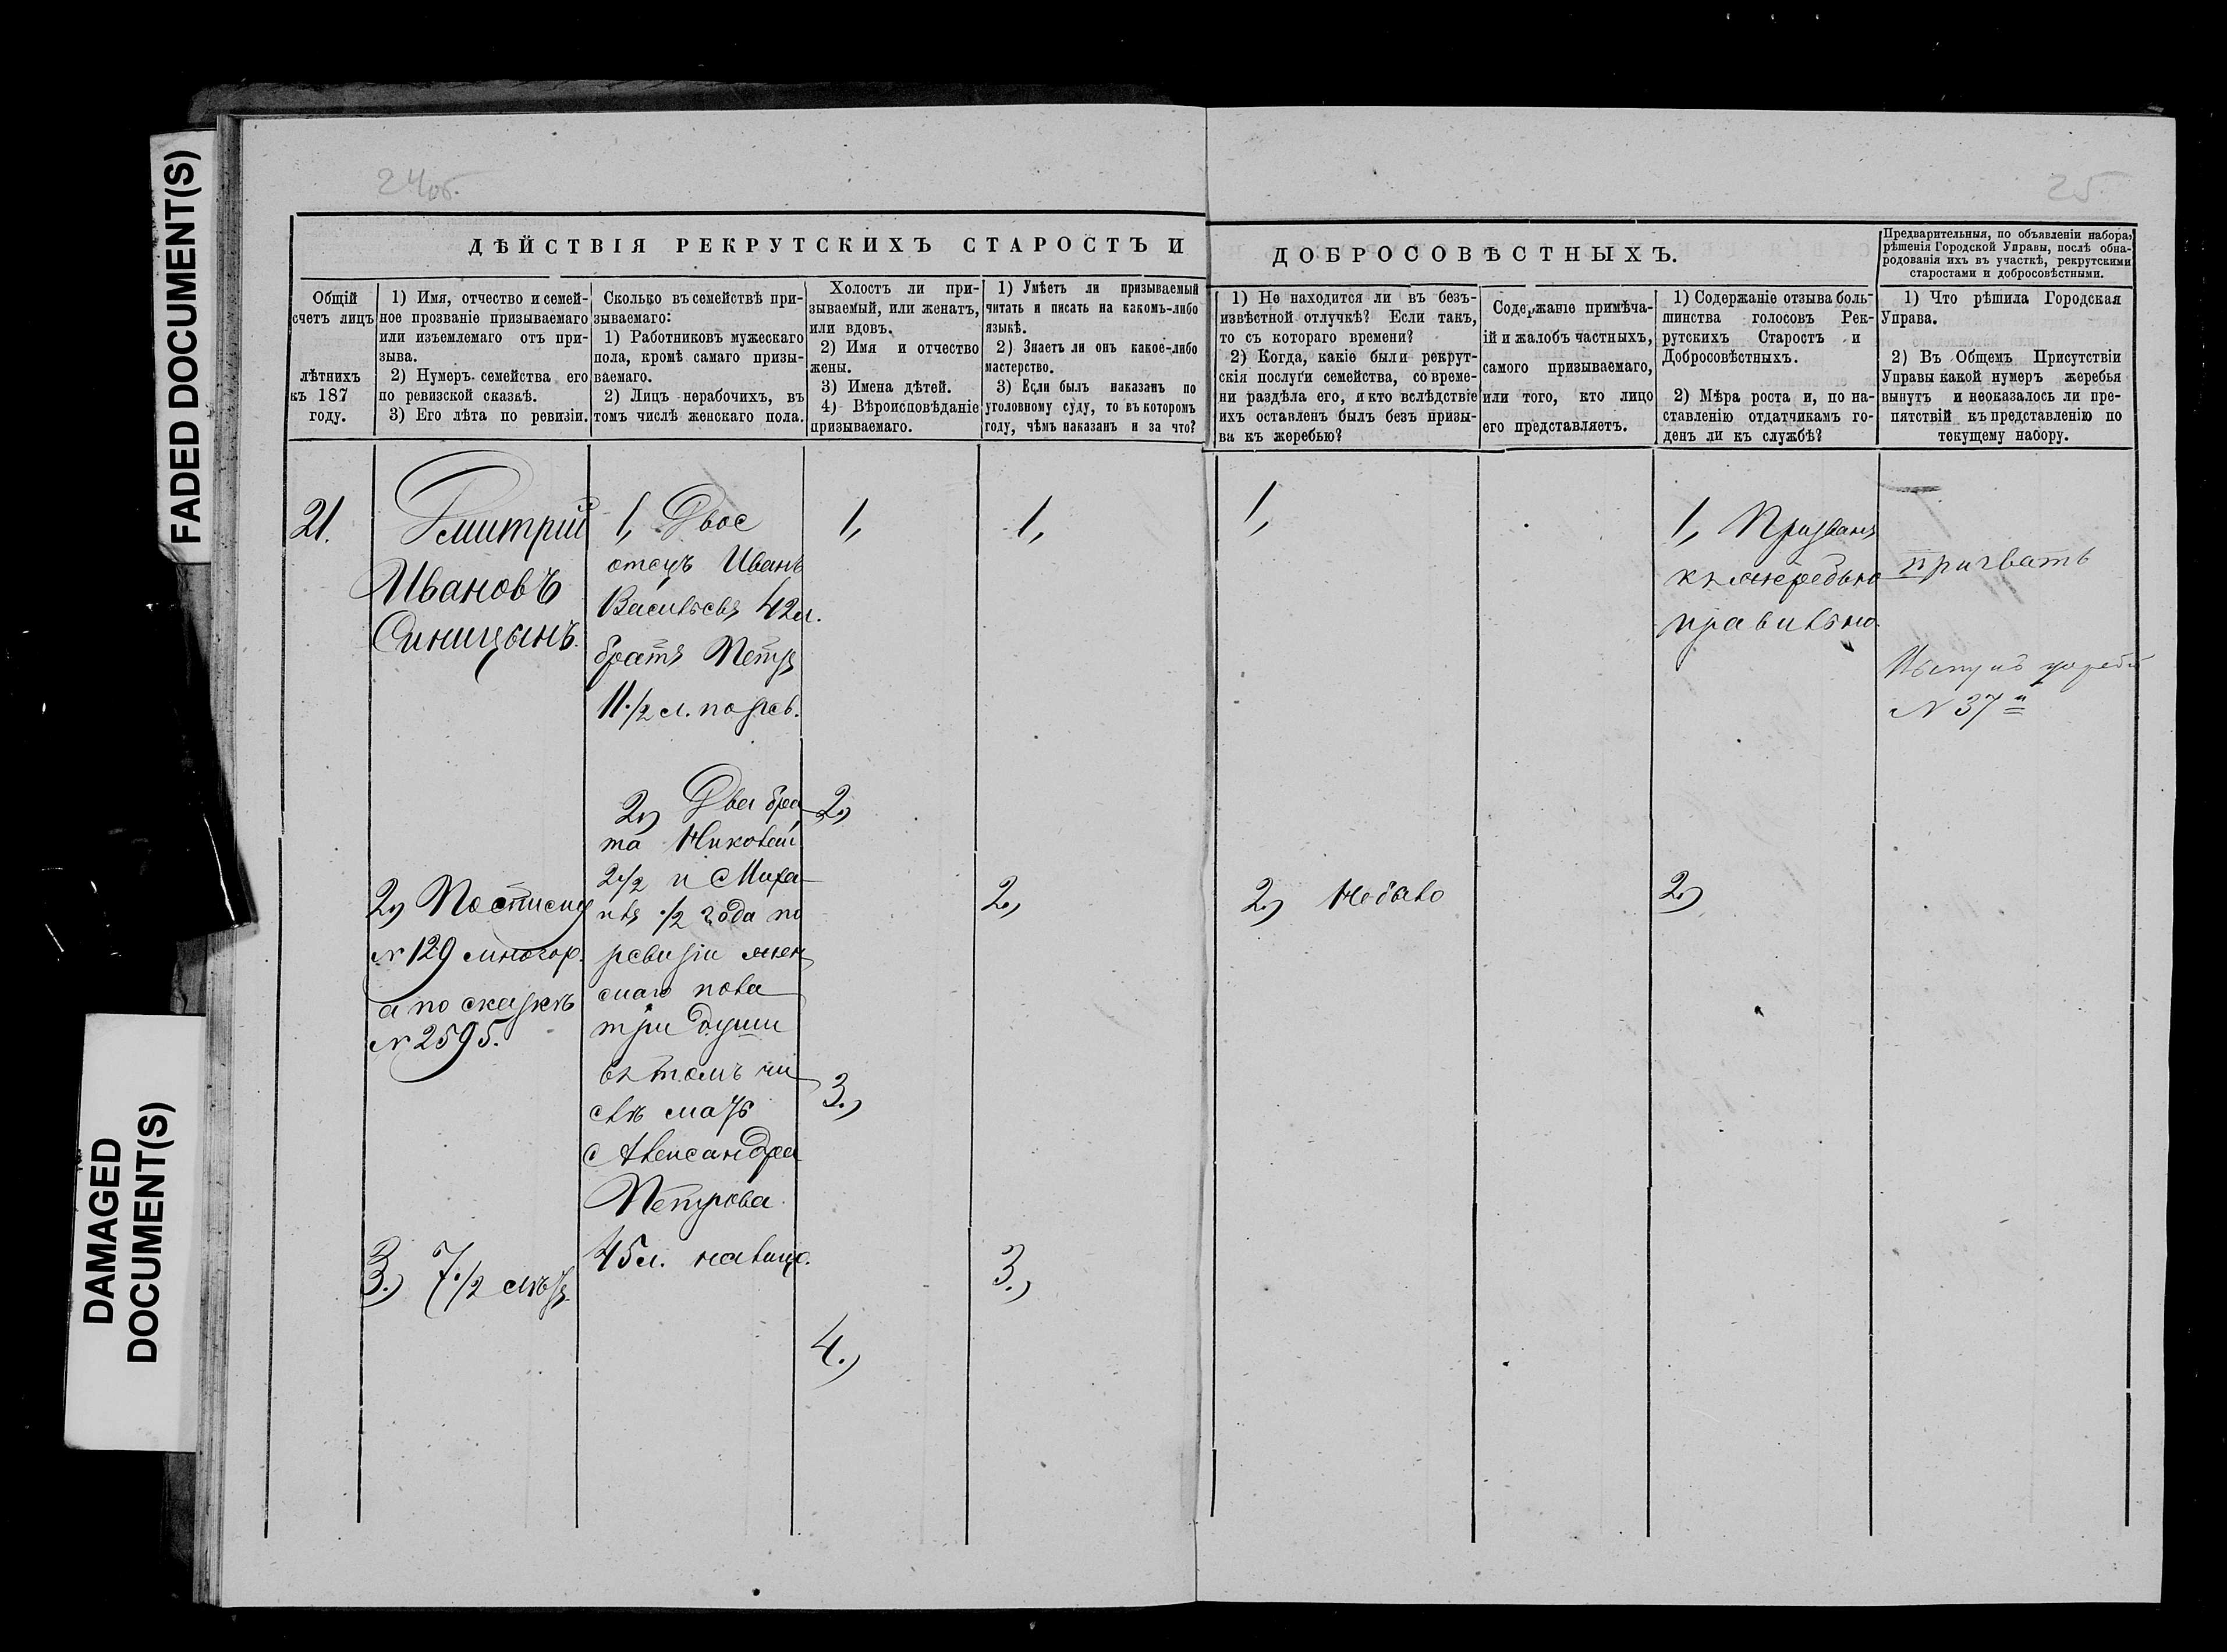 FADED DOCUMENT(S)
DAMAGED
DOCUMENT(S)
24об.
25
ДѢЙСТВІЯ РЕКРУТСКИХЪ СТАРОСТЪ И
ДОБРОСОВѢСТНЫХЪ.
Предварительныя, по объявленіи набора,
рѣшенія Городской Управы, послѣ обна-
родованія ихъ въ участкѣ, рекрутскими
старостами и добросовѣстными.
Общій
счетъ лицъ
лѣтнихъ
къ 187
году.
1) Имя, отчество и семей-
ное прозваніе призываемаго
или изъемлемаго отъ при-
зыва.
2) Нумеръ семейства его
по ревизской сказкѣ.
3) Его лѣта по ревизіи.
Сколько въ семействѣ при-
зываемаго:
1) Работниковъ мужескаго
пола, кромѣ самаго призы-
ваемаго.
2) Лицъ нерабочихъ, въ
томъ числѣ женскаго пола.
Холостъ ли при-
зываемый, или женатъ,
или вдовъ.
2) Имя и отчество
жены.
3) Имена дѣтей.
4) Вѣроисповѣданіе
призываемаго.
1) Умѣетъ ли призываемый
читать и писать на какомъ-либо
языкѣ.
2) Знаетъ ли онъ какое-либо
мастерство.
3) Если былъ наказанъ по
уголовному суду, то въ которомъ
году, чѣмъ наказанъ и за что?
1) Не находится ли въ безъ-
извѣстной отлучкѣ? Если такъ,
то съ котораго времени?
2) Когда, какіе были рекрут-
скія послуги семейства, со време-
ни раздѣла его, я кто вслѣдствіе
ихъ оставленъ былъ безъ призы-
ва къ жеребью?
Содержаніе примѣча-
ій и жалобъ частныхъ,
самого призываемаго,
или того, кто лицо
его представляетъ.
1) Содержаніе отзыва боль-
шинства голосовъ Рек-
рутскихъ Старостъ и
Добросовѣстныхъ.
2) Мѣра роста и, по на-
ставленію отдатчикамъ го-
денъ ли къ службѣ?
1) Что рѣшила Городская
Управа.
2) Въ Общемъ Присутствіи
Управы какой нумеръ жеребья
вынутъ и неоказалось ли пре-
пятствій къ представленію по
текущему набору.
21.
Дмитрій
Ивановъ
Синицынъ.
2, По списку
№ 129 многор.
а по сказкѣ
№ 2595.
3., 7 1/2 лѣтъ.
1, Двое
отецъ Иванъ
Васильевъ 42 л.
братъ Петръ
11 1/2 л. по рев.
2, Два бра
та Николай
2 1/2 и Миха
илъ 1/2 года по
ревизіи жен
скаго пола
три души
въ томъ чи
слѣ мать
Александра
Петрова
45 л. налицо.
1,
2,
3.,
4.,
1,
2.,
3.,
1,
2., Небыло
1, Призванъ
къ жеребью
правильно.
2,
призвать
Вынулъ жребій
№ 37й